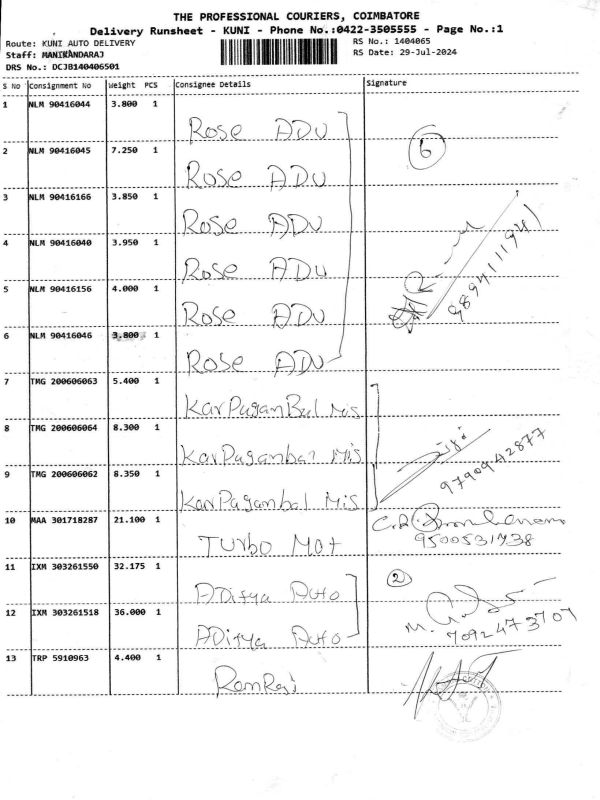 THE PROFESSIONAL COURIERS, COIMBATORE
Delivery Runsheet - KUNI - Phone No.:0422-3505555 - Page No.:1
Route: KUNI AUTO DELIVERY RS No.: 1404065
Staff: MANIKANDARAJ RS Date: 29-Jul-2024
DRS No.: DCJB140406501
S No Consignment No Weight PCS Consignee Details Signature
1 NLM 90416044 3.800 1 Rose ADU
2 NLM 90416045 7.250 1 Rose ADU 6
3 NLM 90416166 3.850 1 Rose ADU
4 NLM 90416040 3.950 1 Rose ADU
5 NLM 90416156 4.000 1 Rose ADU 9894111941
6 NLM 90416046 3.800 1 Rose ADU
7 TMG 200606063 5.400 1 KarPaganBal Mis
8 TMG 200606064 8.300 1 KarPaganbal Mis
9 TMG 200606062 8.350 1 KarPaganbal Mis 9790942877
10 MAA 301718287 21.100 1 TURBO Mot 9500531738
11 IXM 303261550 32.175 1 ADitya Auto 2
12 IXM 303261518 36.000 1 ADitya Auto 7092473707
13 TRP 5910963 4.400 1 RamRaj